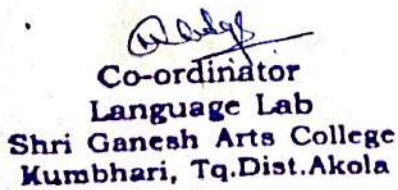 Co-ordinator
Language Lab
Shri Ganesh Arts College
Kumbhari, Tq.Dist.Akola